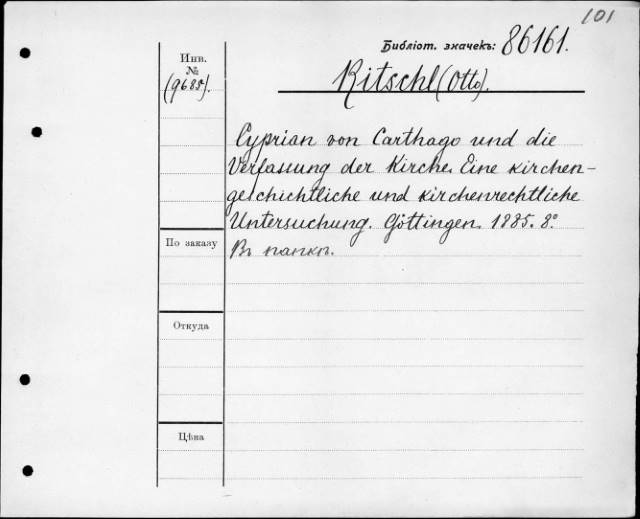 101
Библіот. значекъ: 86161.
Инв.
№
(9685).
Ritschl (Otto).
Cyprian von Carthago und die
Verfassung der Kirche. Eine kirchen-
geschichtliche und kirchenrechtliche
Untersuchung. Göttingen. 1885. 8°
По заказу
Въ папкѣ.
Откуда
Цѣна